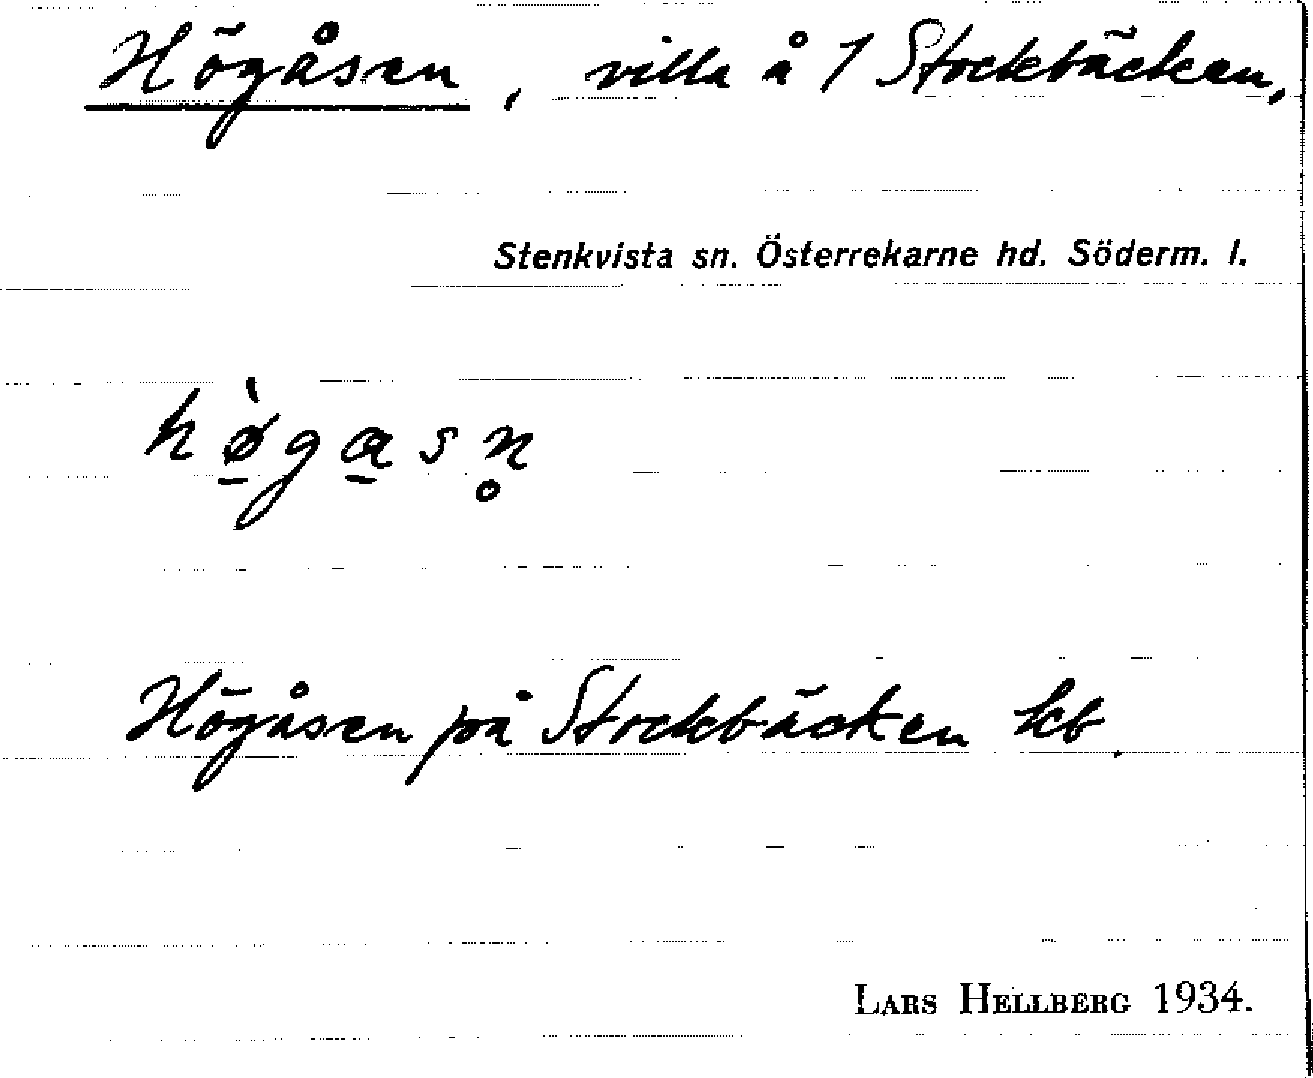 Högåsen, villa å 1 Stockbäcken,
Stenkvista sn. Österrekarne hd. Söderm. l.
hø̠̀ga̠sn̥
Högåsen på Stockbäcken kb.
LARS HELLBERG 1934.